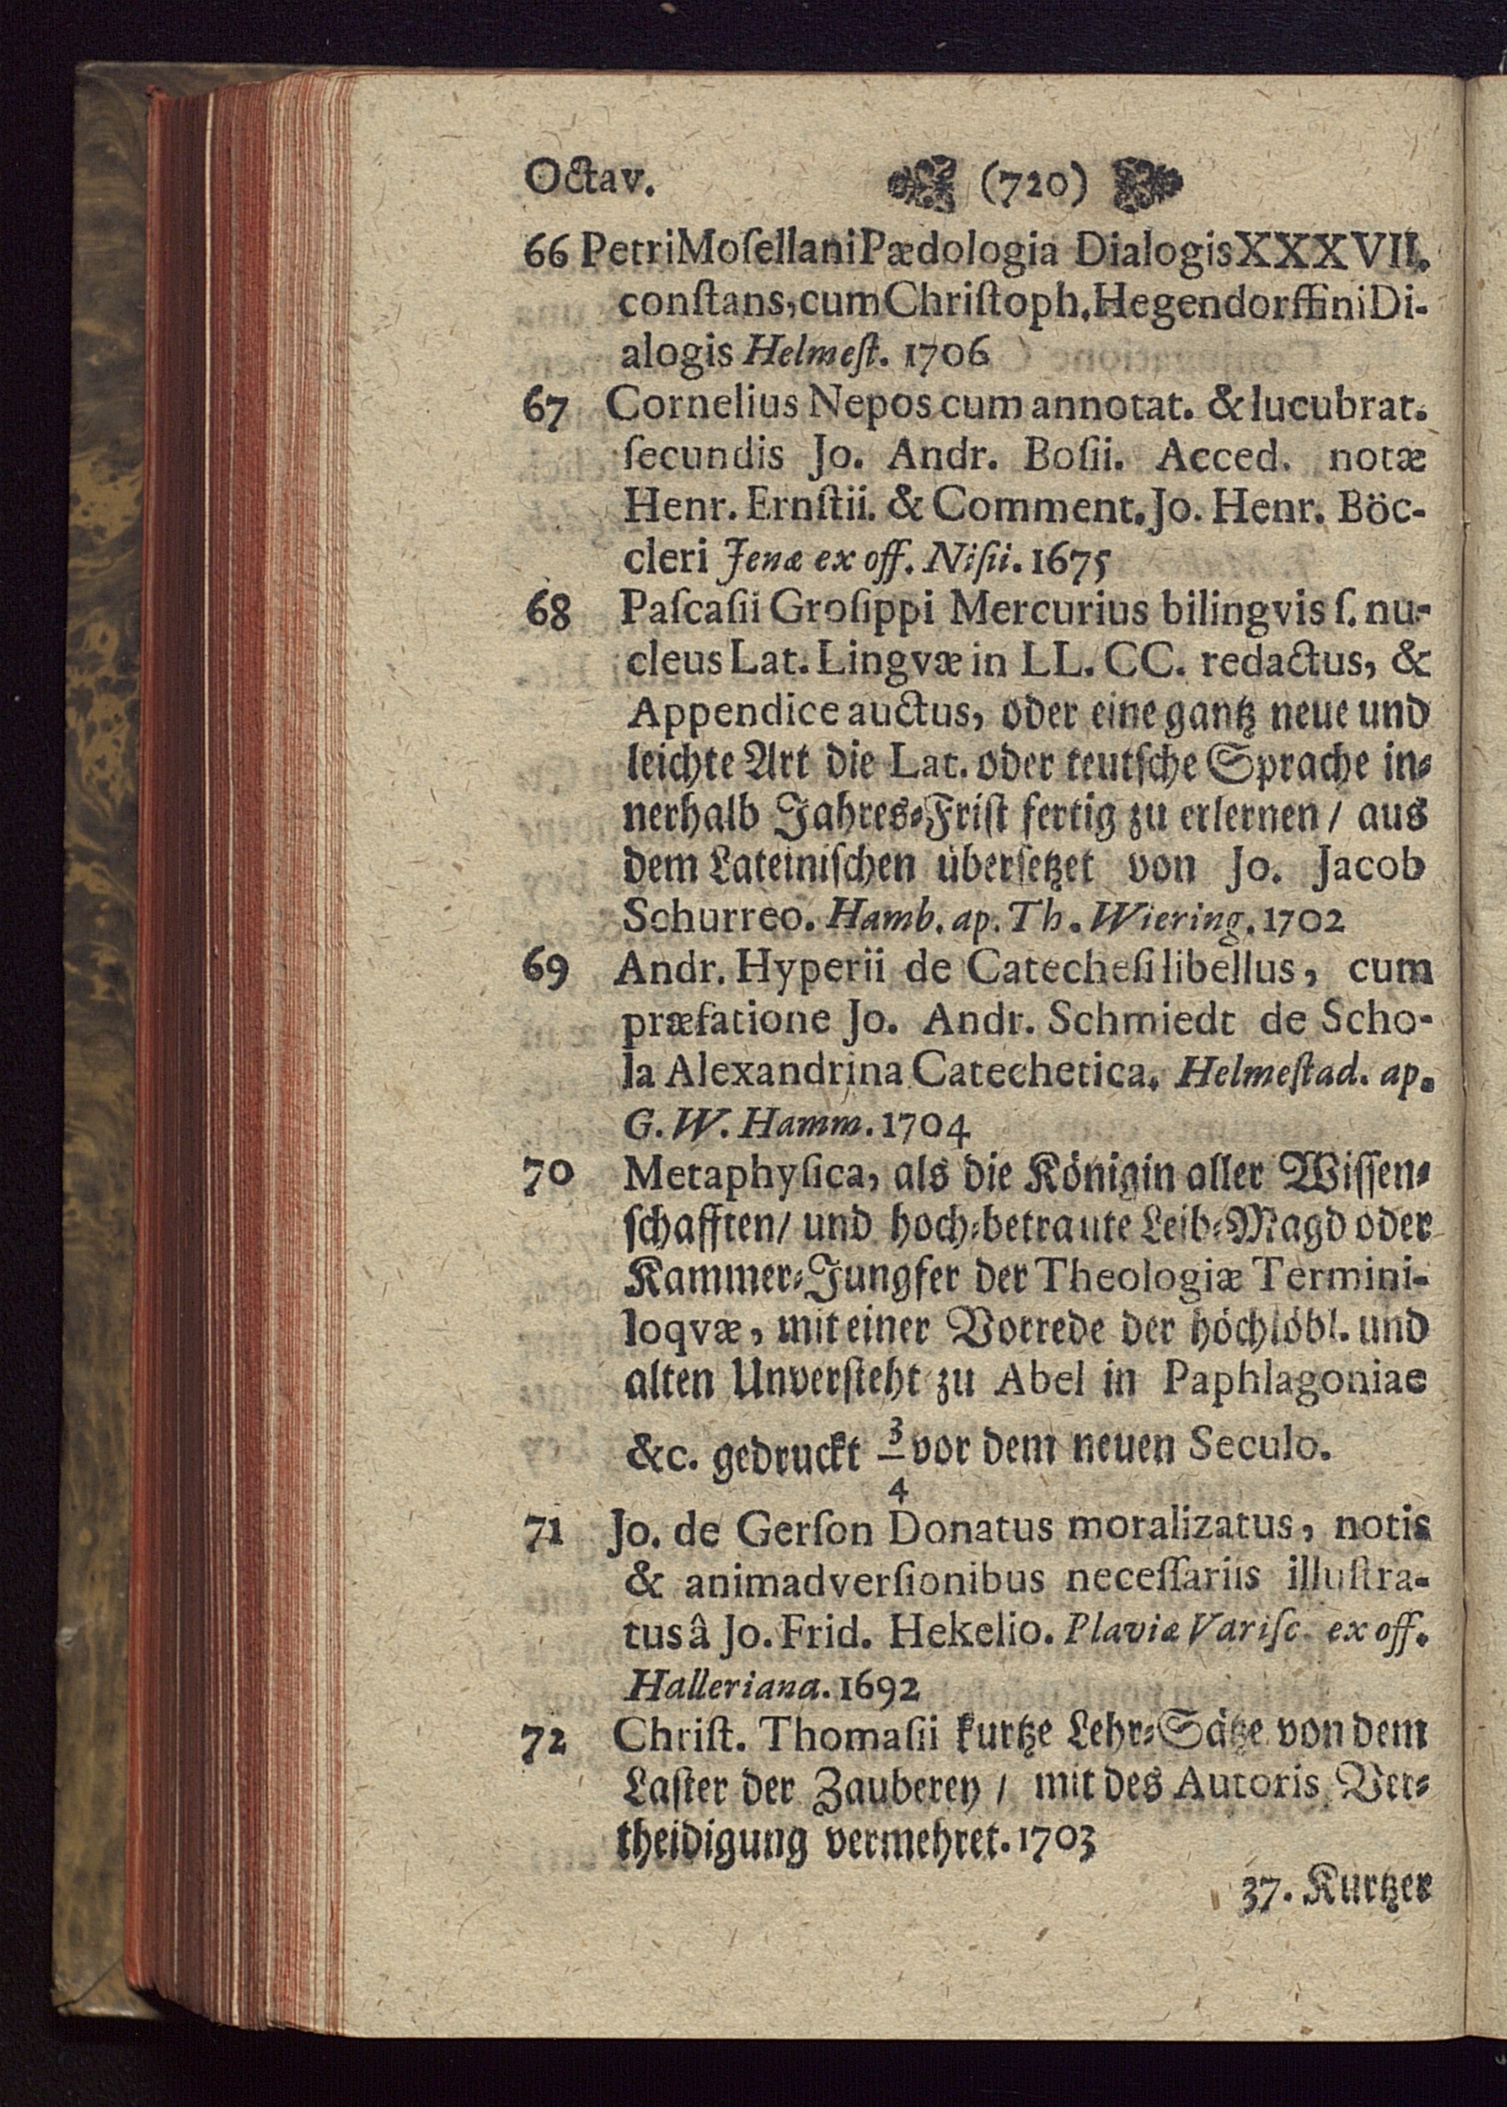 Octav. (720)
66 Petri Moſellani Pædologia Dialogis XXXVII.
conſtans, cum Chriſtoph. Hegendorffini Di-
alogis Helmeſt. 1706
67 Cornelius Nepos cum annotat. & lucubrat.
ſecundis Jo. Andr. Boſii. Acced. notæ
Henr. Ernſtii. & Comment. Jo. Henr. Böc-
cleri Jenæ ex off. Niſii. 1675
68 Paſcaſii Groſippi Mercurius bilingvis ſ. nu-
cleus Lat. Lingvæ in LL. CC. redactus, &
Appendice auctus, oder eine gantz neue und
leichte Art die Lat. oder teutſche Sprache in-
nerhalb Jahres-Friſt fertig zu erlernen / aus
dem Lateiniſchen überſetzet von Jo. Jacob
Schurreo. Hamb. ap. Th. Wiering. 1702
69 Andr. Hyperii de Catecheſi libellus, cum
præfatione Jo. Andr. Schmiedt de Scho-
la Alexandrina Catechetica. Helmeſtad. ap.
G. W. Hamm. 1704
70 Metaphyſica, als die Königin aller Wiſſen-
ſchafften / und hoch-betraute Leib-Magd oder
Kammer-Jungfer der Theologiæ Termini-
loqvæ, mit einer Vorrede der höchlöbl. und
alten Unverſteht zu Abel in Paphlagoniae
&c. gedruckt 3/4 vor dem neuen Seculo.
71 Jo. de Gerſon Donatus moralizatus, notis
& animadverſionibus neceſſariis illuſtra-
tus â Jo. Frid. Hekelio. Plaviæ Variſc. ex off.
Halleriana. 1692
72 Chriſt. Thomaſii kurtze Lehr-Sätze von dem
Laſter der Zauberey / mit des Autoris Ver-
theidigung vermehret. 1703
37. Kurtzer